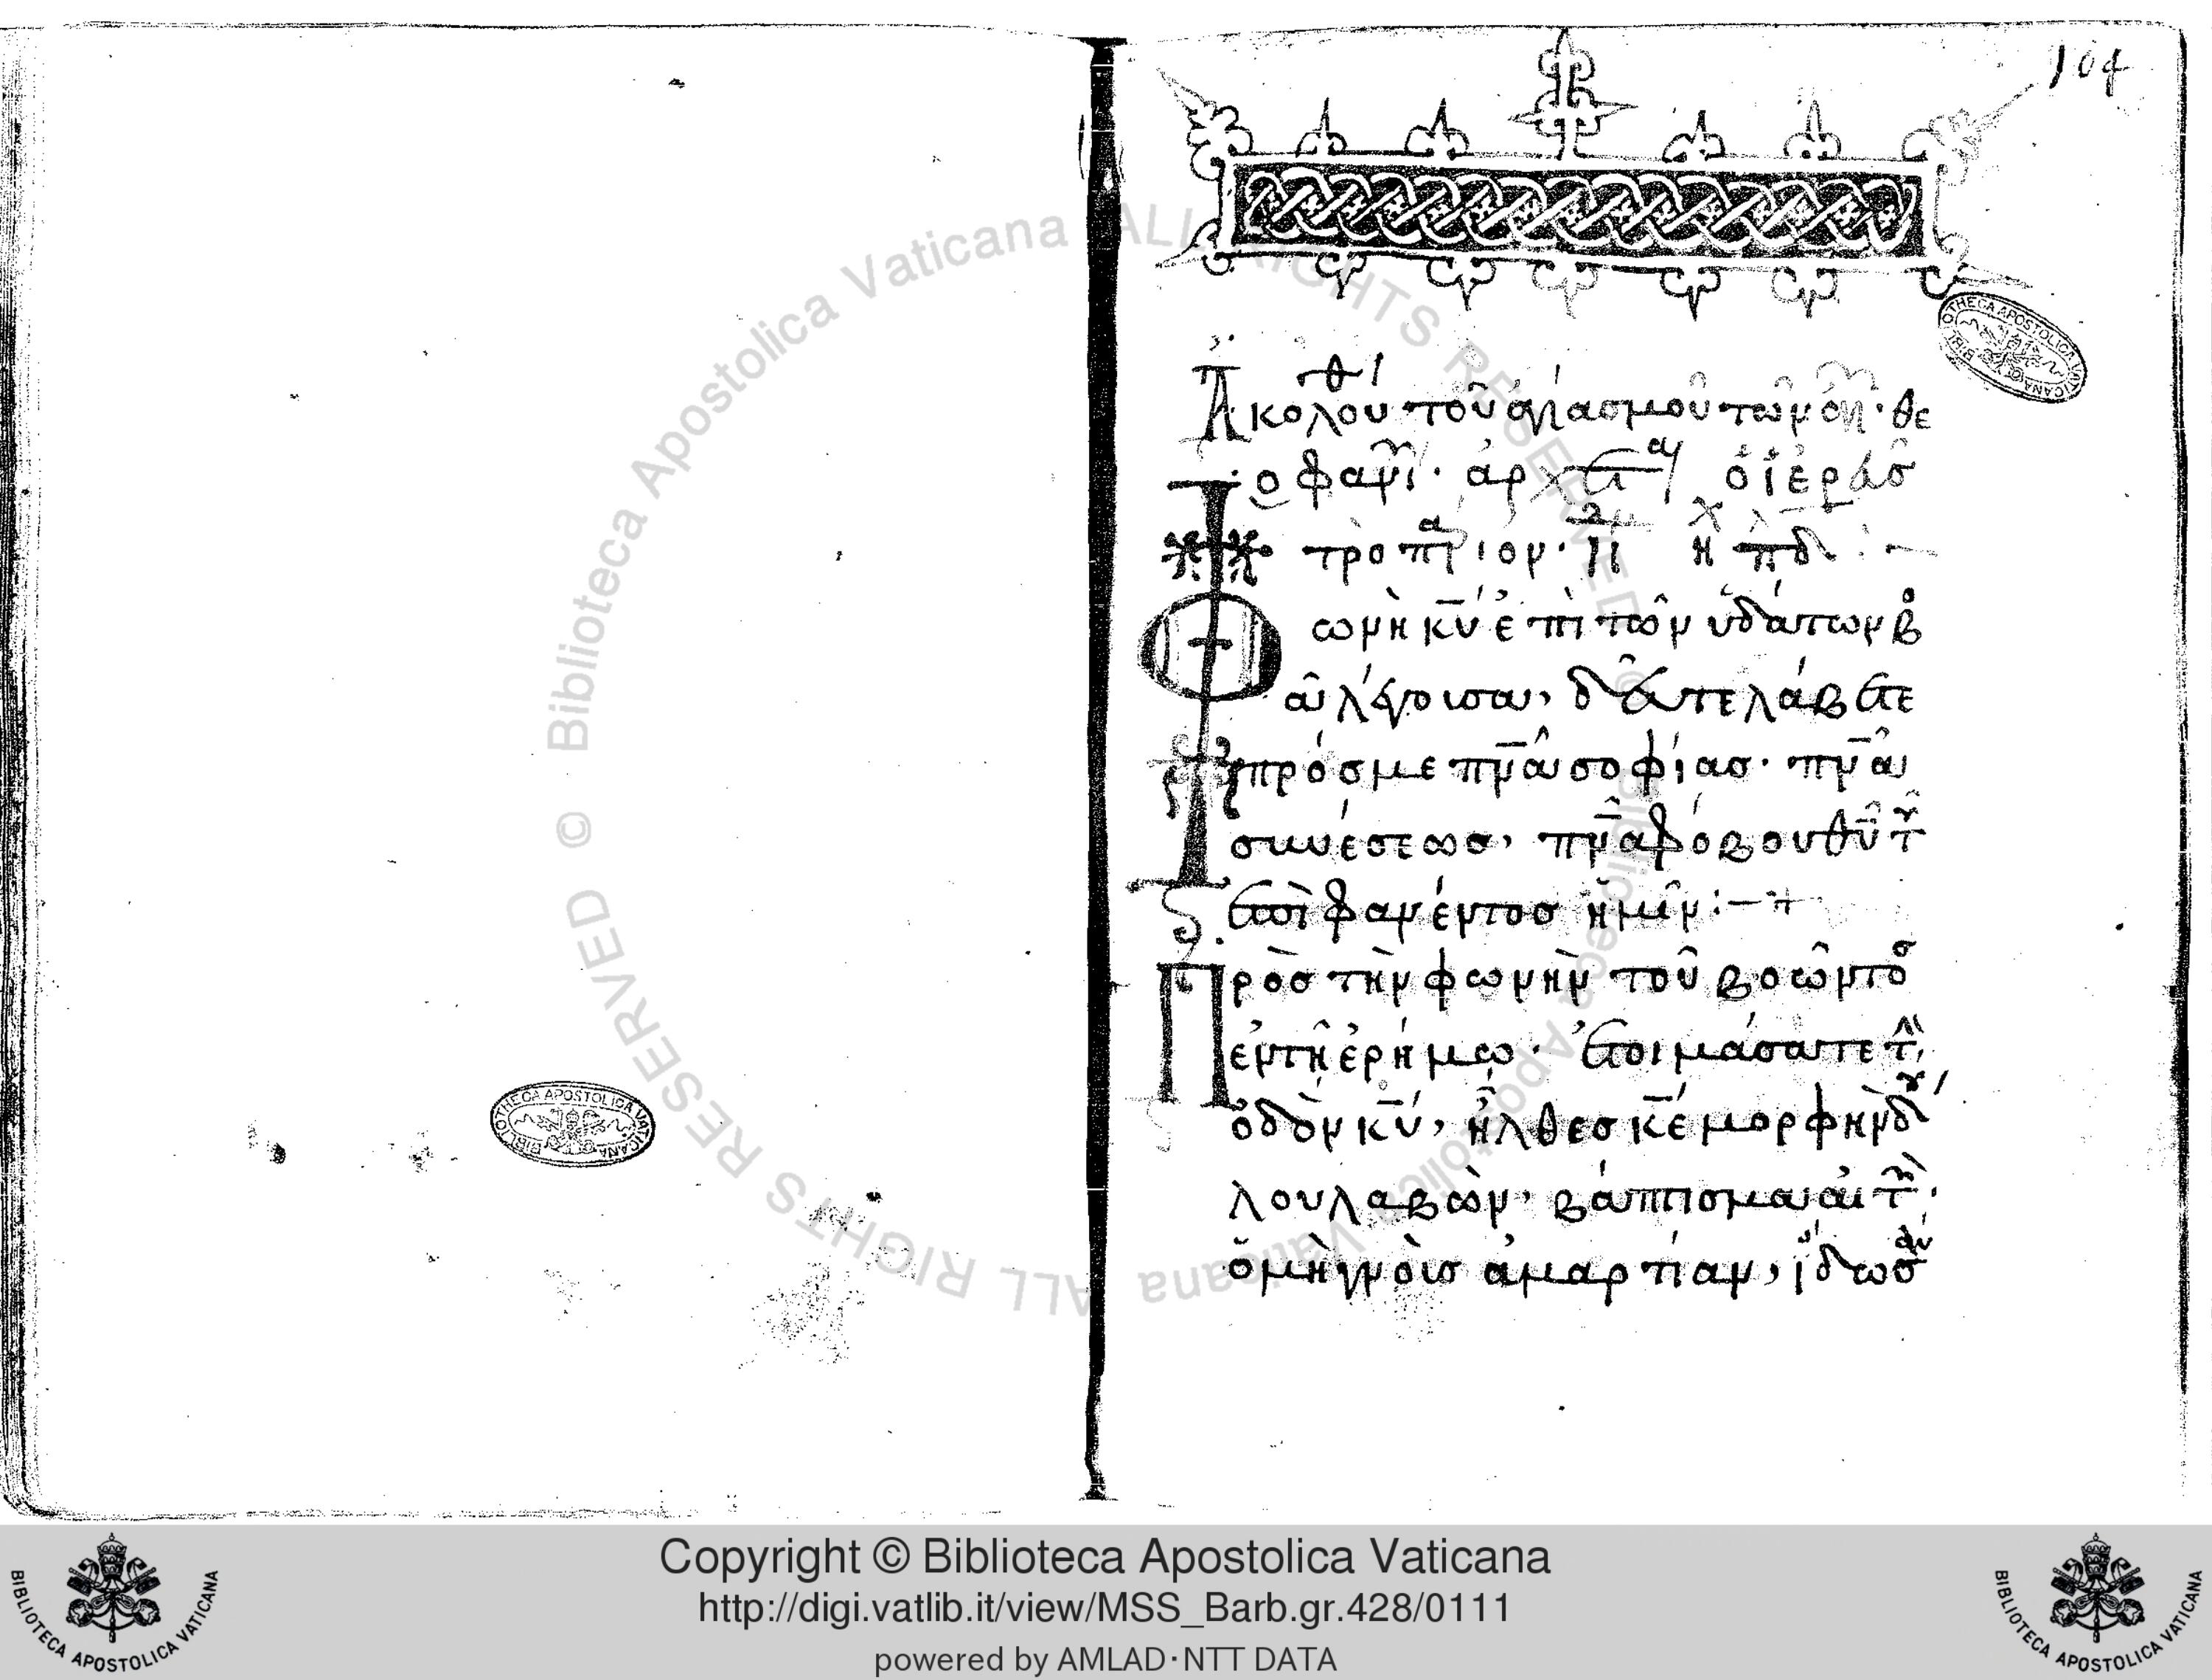 104
Ἀκολου θ τοῦ ἁγιασμοῦ τῶν ἁγί· θε
οφανί· ἄρχεται ὁ ἱερεὺς
τροπάριον· ἦχ πδ :–
Φωνὴ κῡ ἐπὶ τῶν ὑδάτων βο
ᾷ λέγουσα, δεῦτε λάβετε
πρόσμε πν̅α σοφίασ· πν̅α
συνέσεωσ, πν̅α φόβου θ̅υ τοῦ
ἐπιφανέντοσ ἡμῖν :–
Πρὸσ τὴν φωνὴν τοῦ βοῶντοσ
ἐν τῇ ἐρήμω· ἑτοιμάσατε τὴν
ὁδὸν κ̅υ, ἦλθεσ κ̅ε μορφὴν δού
λου λαβὼν, βάπτισμα αἰτῶν·
ὁ μὴ γνοὺσ ἁμαρτίαν, ἴδωσάν
BIBLIOTHECA APOSTOLICA VATICANA
BIBLIOTHECA APOSTOLICA VATICANA
© Biblioteca Apostolica Vaticana ALL RIGHTS RESERVED
© Biblioteca Apostolica Vaticana ALL RIGHTS RESERVED
Copyright © Biblioteca Apostolica Vaticana
http://digi.vatlib.it/view/MSS_Barb.gr.428/0111
powered by AMLAD·NTT DATA
BIBLIOTECA APOSTOLICA VATICANA
BIBLIOTECA APOSTOLICA VATICANA